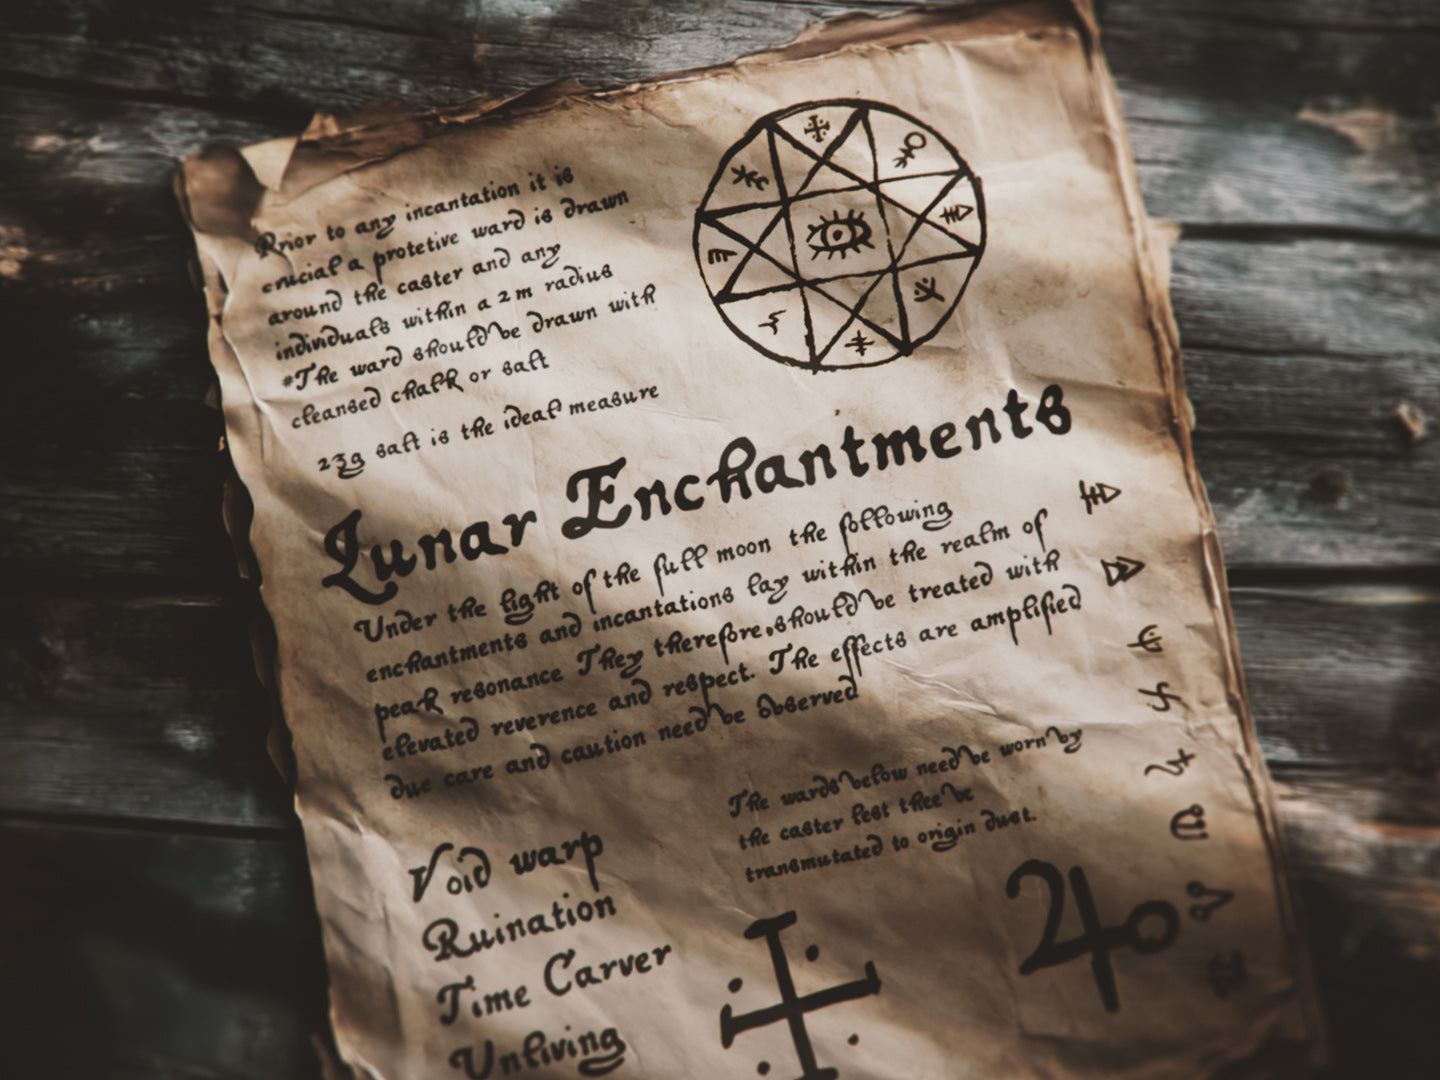 Prior to any incantation it is
crucial a protetive ward is drawn
around the caster and any
individuals within a 2m radius
*The ward should be drawn with
cleansed chalk or salt
23g salt is the ideal measure
Lunar Enchantments
Under the light of the full moon the following
enchantments and incantations lay within the realm of
peak resonance They therefore, should be treated with
elevated reverence and respect. The effects are amplified
due care and caution need be observed
The wards below need be worn by
the caster lest thee be
transmutated to origin dust.
Void warp
Ruination
Time Carver
Unliving